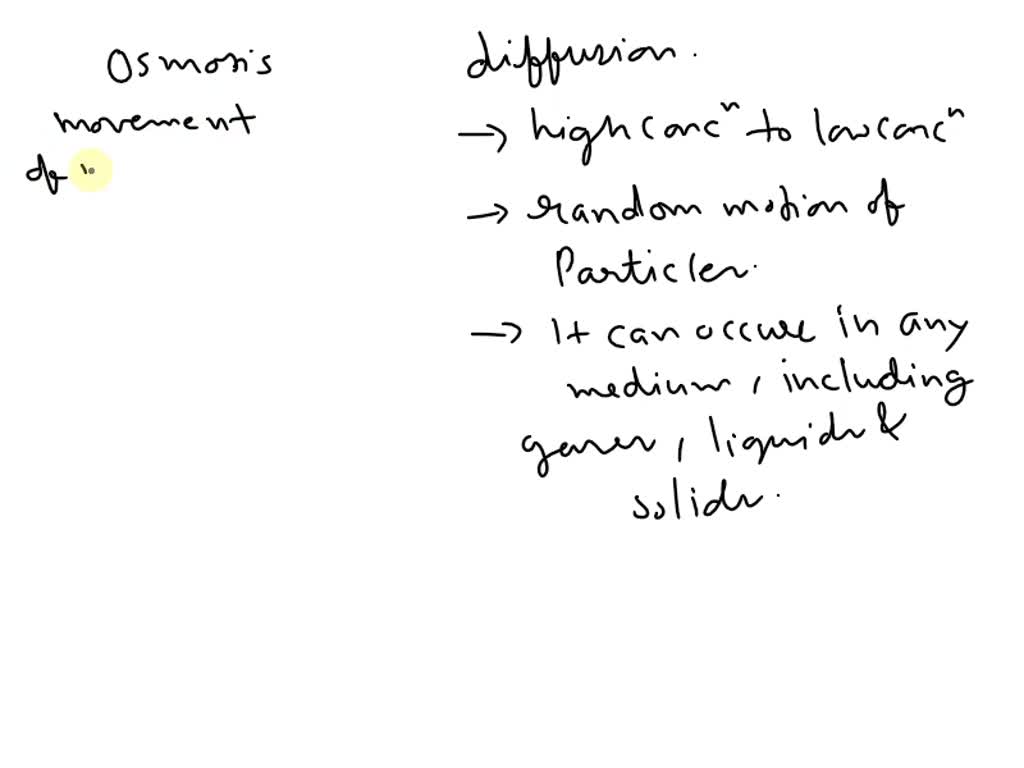 Osmosis
movement
of
diffusion.
→ high concⁿ to low concⁿ
→ random motion of
Particles.
→ It can occure in any
medium, including
gases, liquids &
solids.